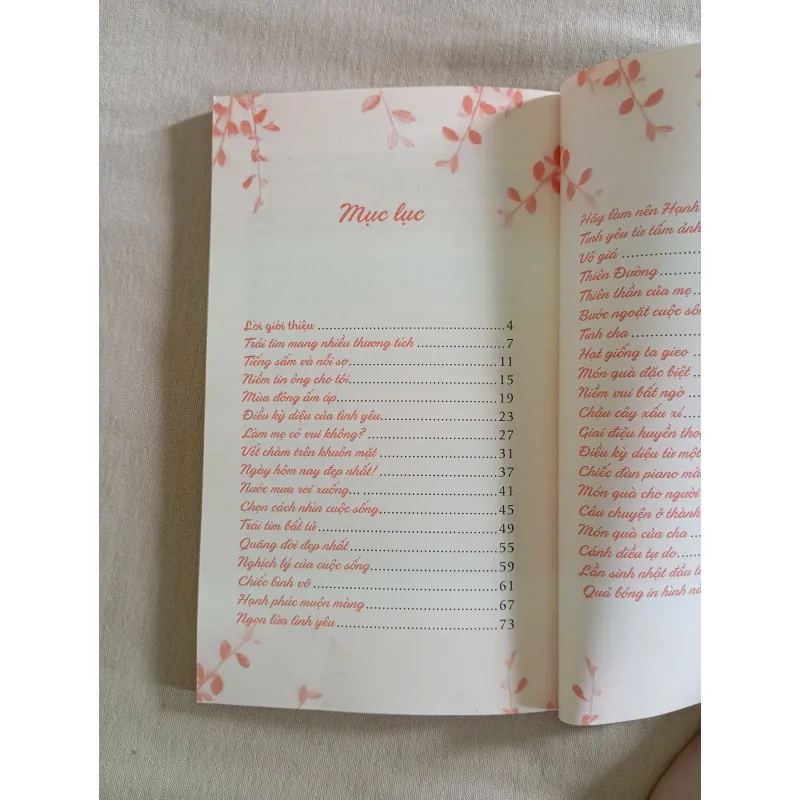 Mục lục
Lời giới thiệu 4
Trái tim mang nhiều thương tích 7
Tiếng sấm và nỗi sợ 11
Niềm tin ông cho tôi 15
Mùa đông ấm áp 19
Điều kỳ diệu của tình yêu 23
Làm mẹ có vui không? 27
Vết chàm trên khuôn mặt 31
Ngày hôm nay đẹp nhất! 37
Nước mưa rơi xuống 41
Chọn cách nhìn cuộc sống 45
Trái tim bất tử 49
Quãng đời đẹp nhất 55
Nghịch lý của cuộc sống 59
Chiếc bình vỡ 61
Hạnh phúc muộn màng 67
Ngọn lửa tình yêu 73
Hãy làm nên Hạnh
Tình yêu từ tấm ảnh
Vô giá
Thiên Đường
Thiên thần của mẹ
Bước ngoặt cuộc
Tình cha
Hạt giống ta gieo
Món quà đặc biệt
Niềm vui bất ngờ
Chậu cây xấu xí
Giai điệu huyền
Điều kỳ diệu từ một
Chiếc đàn piano
Món quà cho người
Câu chuyện ở
Món quà của cha
Cánh diều tự do
Lần sinh nhật đầu
Quả bóng in hình